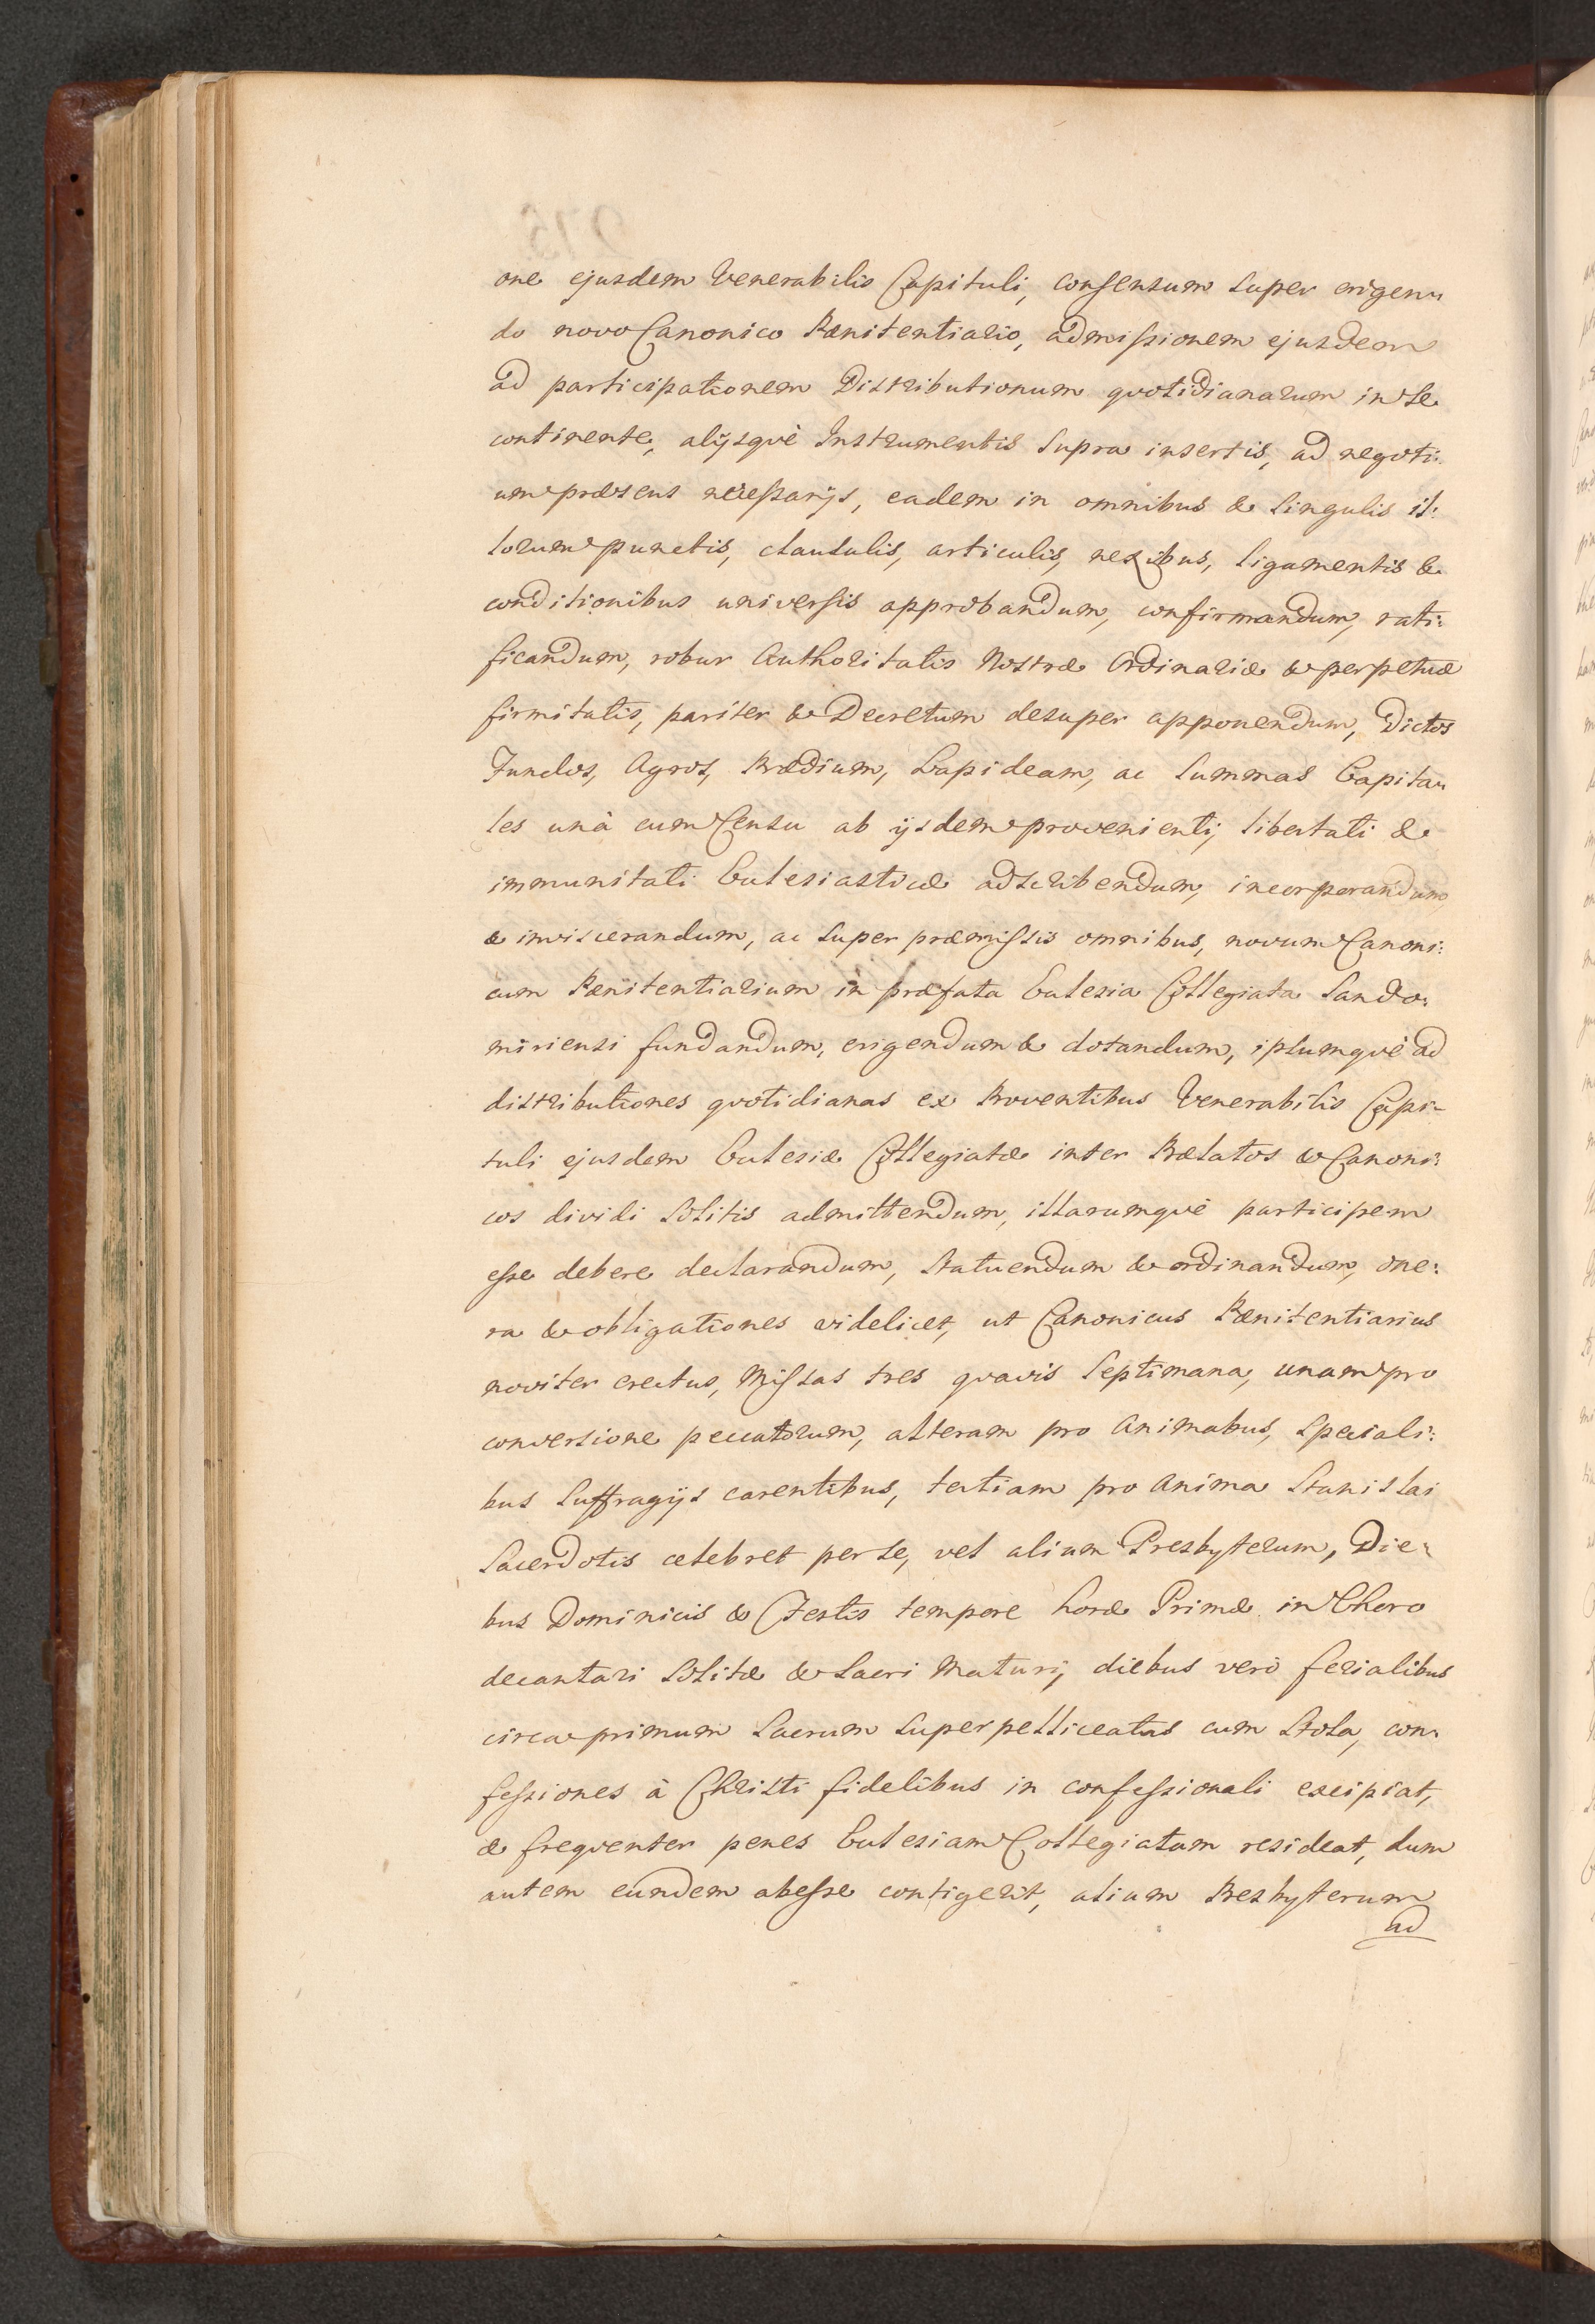 one ejusdem Venerabilis Capituli, consensum super erigen-
do novo Canonico Pænitentiario, admissionem ejusdem
ad participationem Distributionum quotidianarum in se
continente, alijsquè Instrumentis supra insertis, ad negoti:
um præsens necessarijs, eadem in omnibus & singulis il:
lorum punctis, clausulis, articulis, nexibus, ligamentis &
conditionibus universis approbandum, confirmandum, rati:
ficandum, robur Authoritatis Nostræ Ordinariæ & perpetuæ
firmitatis, pariter & Decretum desuper apponendum, Dictos
Fundos, Agros, Prædium, Lapideam, ac Summas Capita-
les unà cum Censu ab ijsdem provenienti, libertati &
immunitati Ecclesiasticæ adscribendum, incorporandum,
& inviscerandum, ac super præmissis omnibus, novum Canoni:
cum Pænitentiarium in præfata Ecclesia Collegiata Sando:
miriensi fundandum, erigendum & dotandum, ipsumquè ad
distributiones quotidianas ex Proventibus Venerabilis Capi-
tuli ejusdem Ecclesiæ Collegiatæ inter Prælatos & Canoni:
cos dividi solitis admittendum, illarumquè participem
esse debere declarandum, statuendum & ordinandum, one:
ra & obligationes videlicet, ut Canonicus Pænitentiarius
noviter erectus, Missas tres quavis Septimana, unam pro
conversione peccatorum, alteram pro Animabus, speciali:
bus Suffragijs carentibus, tertiam pro Anima Stanislai
Sacerdotis celebret per se, vel alium Presbyterum, Die:
bus Dominicis & Festis tempore horæ Primæ in Choro
decantari solitæ & Sacri Maturi, diebus verò ferialibus
circa primum Sacrum superpelliceatus cum Stola, con-
fessiones à Christi fidelibus in confessionali excipiat,
& frequenter penes Ecclesiam Collegiatam resideat, dum
autem eundem abesse contigerit, alium Presbyterum
ad